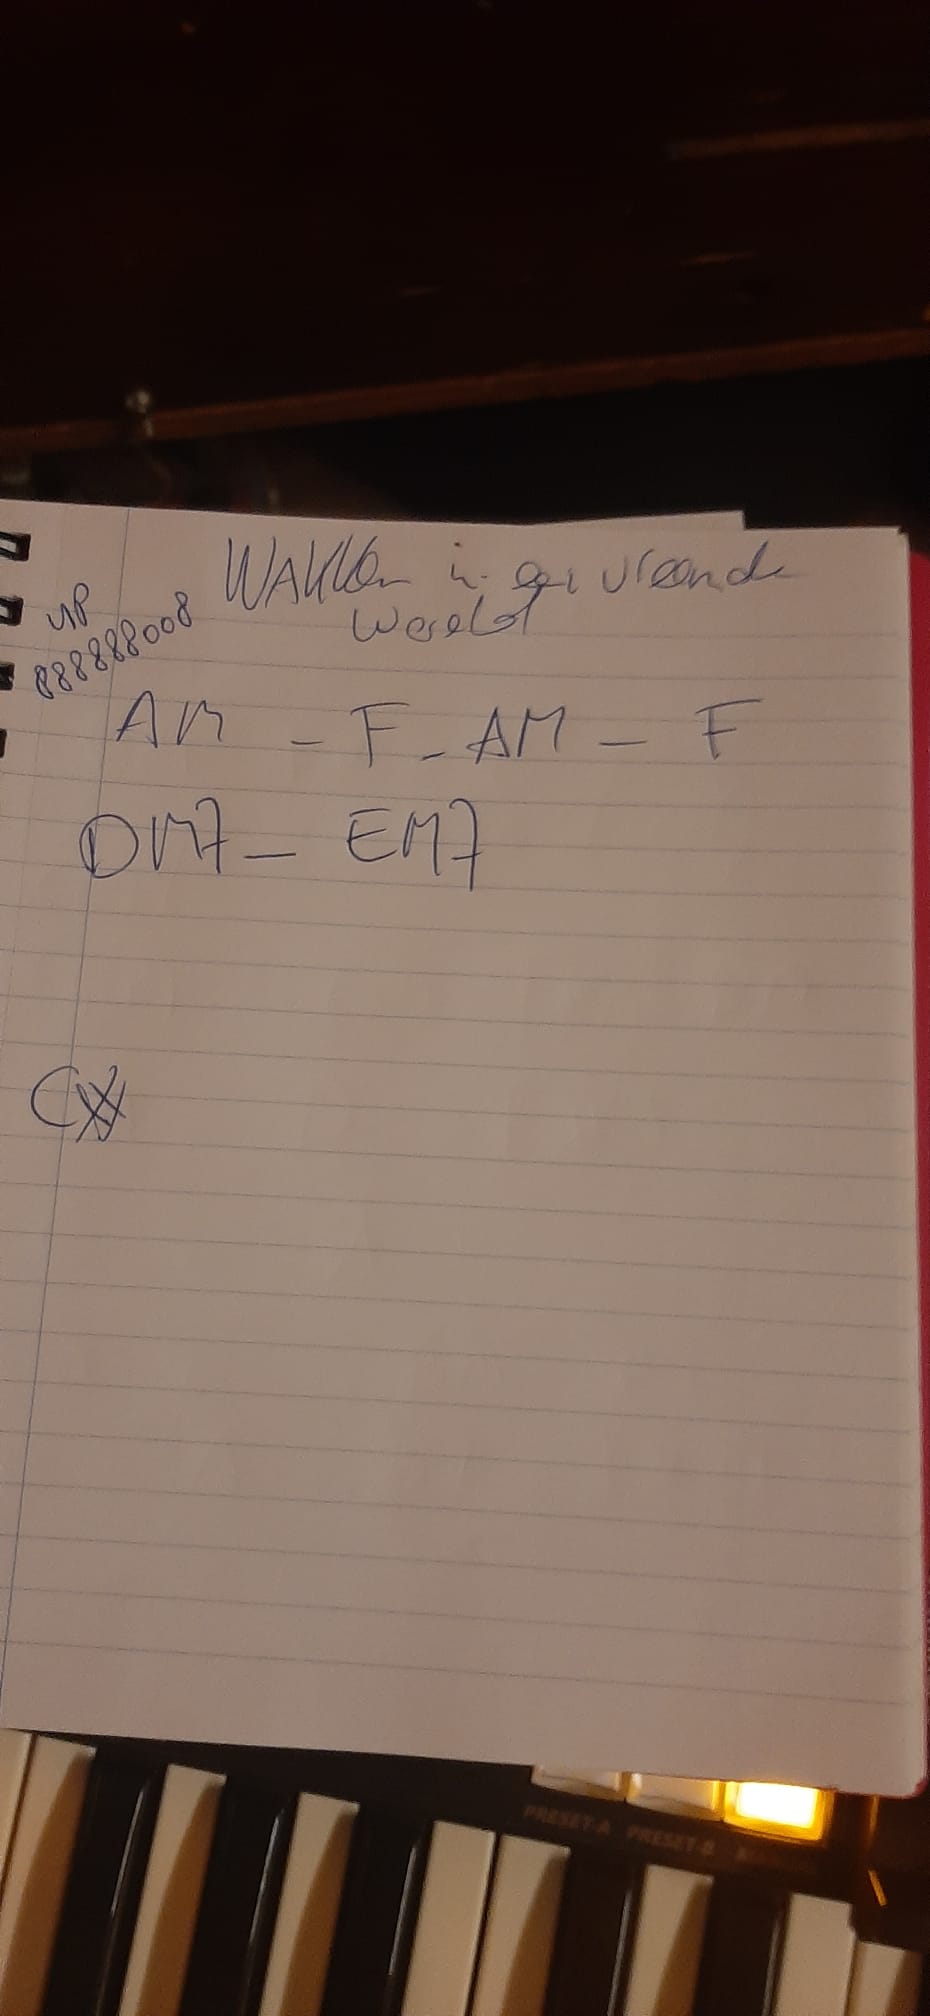 WAKKer in een vreemde
wereld
UP
888888008
AM - F - AM - F
DM7 - EM7
C
PRESET-A PRESET-B